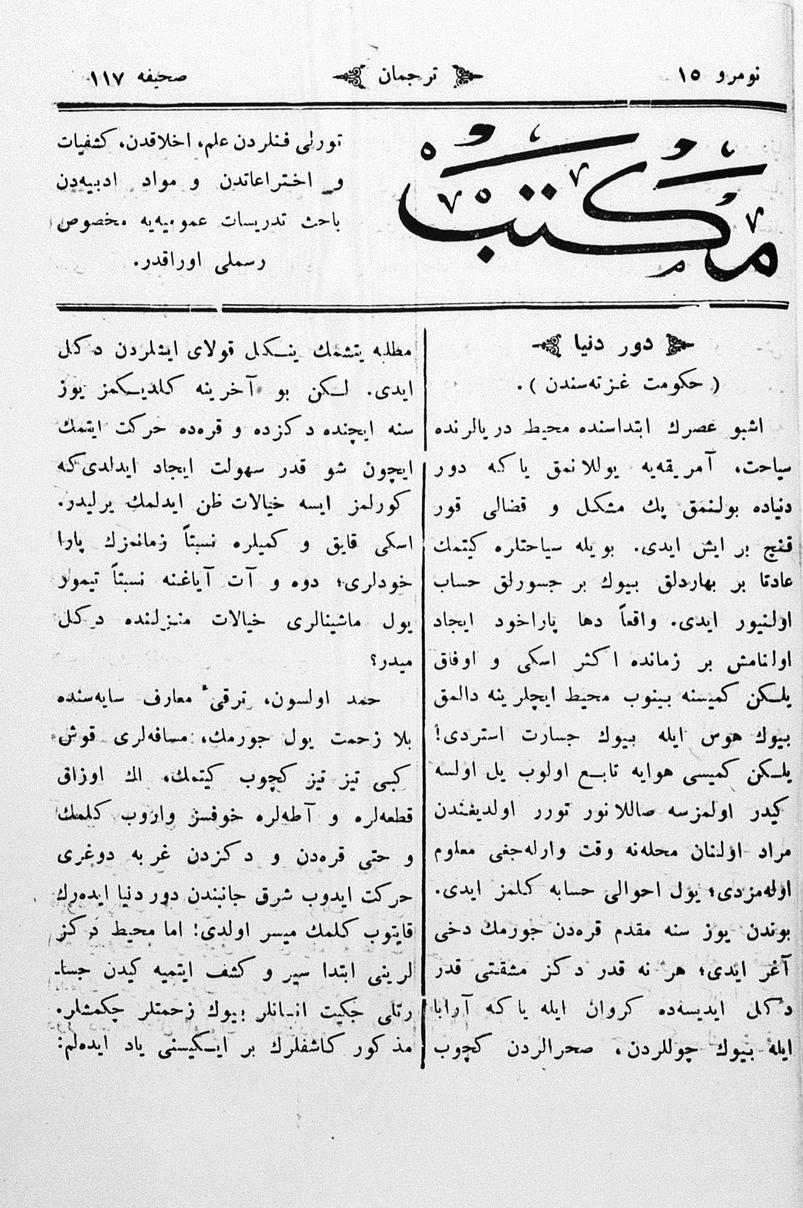 نومرو ١٥
ترجمان
صحیفه ١١٧
مكتب
تورلی فنلردن علم، اخلاقدن، كشفیات
و اختراعاتدن و مواد ادبیه‌دن
باحث تدریسات عمومیه‌یه مخصوص
رسملی اوراقدر.
دور دنیا
(حكومت غزته‌سندن).
اشبو عصرك ابتداسنده محیط دریالرنده
سیاحت، آمریقه‌یه یوللانمق یاكه دور
دنیاده بولنمق پك مشكل و قضالی قور
قنج بر ایش ایدی. بویله سیاحتلره كیتمك
عادتا بر بهادرلق بیوك بر جسورلق حساب
اولنیور ایدی. واقعاً دها پاراخود ایجاد
اولنامش بر زمانده اكثر اسكی و اوفاق
یلكن كمیسنه بینوب محیط ایچلرینه دالمق
بیوك هوس ایله بیوك جسارت استردی!
یلكن كمیسی هوایه تابع اولوب یل اولسه
كیدر اولمزسه صاللانور تورر اولدیغندن
مراد اولنان محله‌نه وقت وارله‌جغی معلوم
اوله‌مزدی؛ یول احوالی حسابه كلمز ایدی.
بوندن یوز سنه مقدم قره‌دن جورمك دخی
آغر ایدی؛ هر نه قدر دكز مشقتی قدر
دكل ایدیسه‌ده كروان ایله یاكه آرابا
ایله بیوك چوللردن، صحرالردن كچوب
مطلبه یتشمك ینكل قولای ایشلردن دكل
ایدی. لكن بو آخرینه كلدیكمز یوز
سنه ایچنده دكزده و قره‌ده حركت ایتمك
ایچون شو قدر سهولت ایجاد ایدلدی‌كه
كورلمز ایسه خیالات ظن ایدلمك یرلیدر.
اسكی قایق و كمیلره نسبتاً زمانمزك پارا
خودلری؛ دوه و آت آیاغنه نسبتاً تیمور
یول ماشینالری خیالات منزلنده دركل
میدر؟
حمد اولسون، ترقیٴ معارف سایه‌سنده
بلا زحمت یول جورمك، مسافه‌لری قوش
كبی تیز تیز كچوب كیتمك، الك اوزاق
قطعه‌لره و آطه‌لره خوفسز واروب كلمك
و حتی قره‌دن و دكزدن غربه دوغری
حركت ایدوب شرق جانبندن دور دنیا ایده‌رك
قایتوب كلمك میسر اولدی! اما محیط دركز
لرینی ابتدا سیر و كشف ایتمیه كیدن جسا-
رتلی جكیت انسانلر بیوك زحمتلر چكمشلر.
مذكور كاشفلرك بر ایكیسنی یاد ایده‌لم: